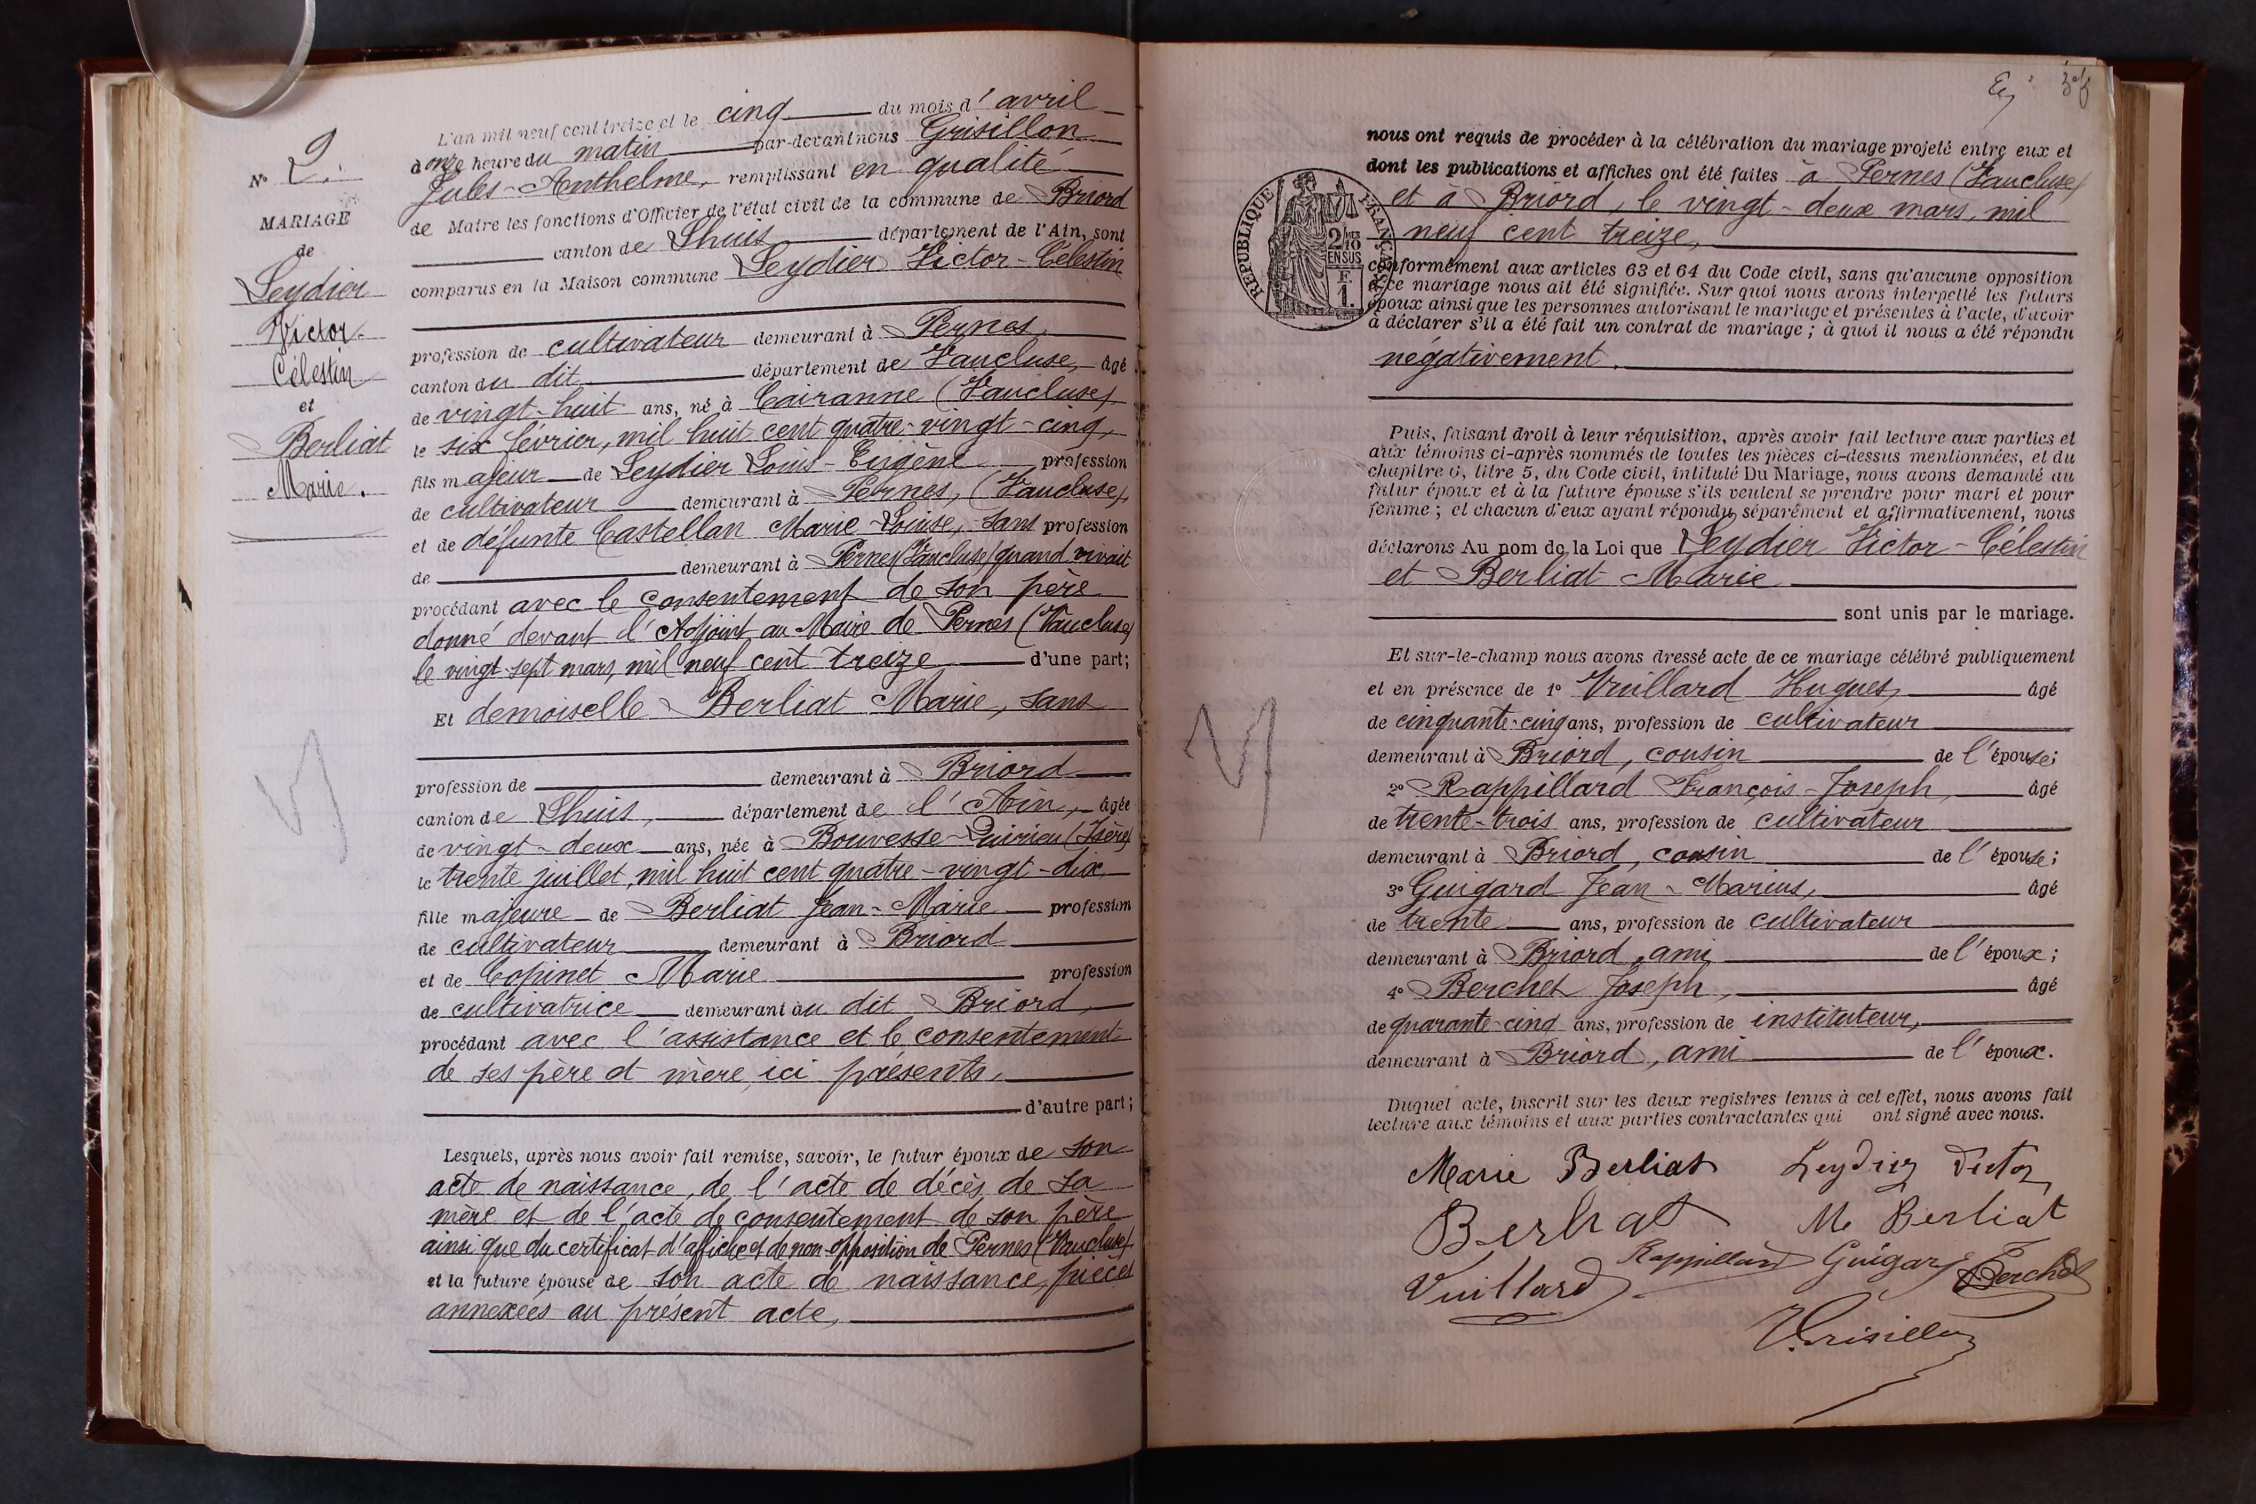 N° 2.
MARIAGE
de
Leydier
Victor
Célestin
et
Berliat
Marie.
L'an mil neuf cent treize et le cinq du mois d'avril
à onze heure du matin par-devant nous Grisillon
Jules-Anthelme, remplissant en qualité
de Maire les fonctions d'Officier de l'état civil de la commune de Briord
canton de Lhuis département de l'Ain, sont
comparus en la Maison commune Leydier Victor-Célestin
profession de cultivateur demeurant à Pernes
canton du dit département de Vaucluse, âgé
de vingt-huit ans, né à Cairanne (Vaucluse)
le six février, mil huit cent quatre-vingt-cinq,
fils majeur de Leydier Louis-Eugène profession
de cultivateur demeurant à Pernes, (Vaucluse),
et de défunte Castellan Marie-Louise, sans profession
de demeurant à Pernes (Vaucluse) quand vivait
procédant avec le consentement de son père
donné devant l'Adjoint au Maire de Pernes (Vaucluse)
le vingt-sept mars, mil neuf cent treize d'une part;
Et demoiselle Berliat Marie, sans
profession de demeurant à Briord
canton de Lhuis, département de l'Ain, âgée
de vingt-deux ans, née à Bouvesse-Quirieu (Isère)
le trente juillet, mil huit cent quatre-vingt-dix
fille majeure de Berliat Jean-Marie profession
de cultivateur demeurant à Briord
et de Copinet Marie profession
de cultivatrice demeurant au dit Briord,
procédant avec l'assistance et le consentement
de ses père et mère, ici présents,
d'autre part;
Lesquels, après nous avoir fait remise, savoir, le futur époux de son
acte de naissance, de l'acte de décès de sa
mère et de l'acte de consentement de son père
ainsi que du certificat d'affiches et de non-opposition de Pernes (Vaucluse)
et la future épouse de son acte de naissance, pièces
annexées au présent acte,
nous ont requis de procéder à la célébration du mariage projeté entre eux et
dont les publications et affiches ont été faites à Pernes (Vaucluse)
et à Briord, le vingt-deux mars, mil
neuf cent treize,
RÉPUBLIQUE FRANÇAISE
2/10
EN SUS
F
1.
conformément aux articles 63 et 64 du Code civil, sans qu'aucune opposition
à ce mariage nous ait été signifiée. Sur quoi nous avons interpellé les futurs
époux ainsi que les personnes autorisant le mariage et présentes à l'acte, d'avoir
à déclarer s'il a été fait un contrat de mariage ; à quoi il nous a été répondu
négativement.
Puis, faisant droit à leur réquisition, après avoir fait lecture aux parties et
aux témoins ci-après nommés de toutes les pièces ci-dessus mentionnées, et du
chapitre 6, titre 5, du Code civil, intitulé Du Mariage, nous avons demandé au
futur époux et à la future épouse s'ils veulent se prendre pour mari et pour
femme ; et chacun d'eux ayant répondu séparément et affirmativement, nous
déclarons Au nom de la Loi que Leydier Victor-Célestin
et Berliat Marie
sont unis par le mariage.
Et sur-le-champ nous avons dressé acte de ce mariage célébré publiquement
et en présence de 1° Vuillard Hugues, âgé
de cinquante-cinq ans, profession de cultivateur
demeurant à Briord, cousin de l'épouse;
2° Rappillard François-Joseph, âgé
de trente-trois ans, profession de cultivateur
demeurant à Briord, cousin de l'épouse;
3° Guigard Jean-Marius, âgé
de trente ans, profession de cultivateur
demeurant à Briord, ami de l'époux;
4° Berchet Joseph, âgé
de quarante-cinq ans, profession de instituteur,
demeurant à Briord, ami de l'époux.
Duquel acte, inscrit sur les deux registres tenus à cet effet, nous avons fait
lecture aux témoins et aux parties contractantes qui ont signé avec nous.
Marie Berliat Leydier Victor
Berliat M Berliat
Rappillard Guigard Berchet
Vuillard
Grisillon